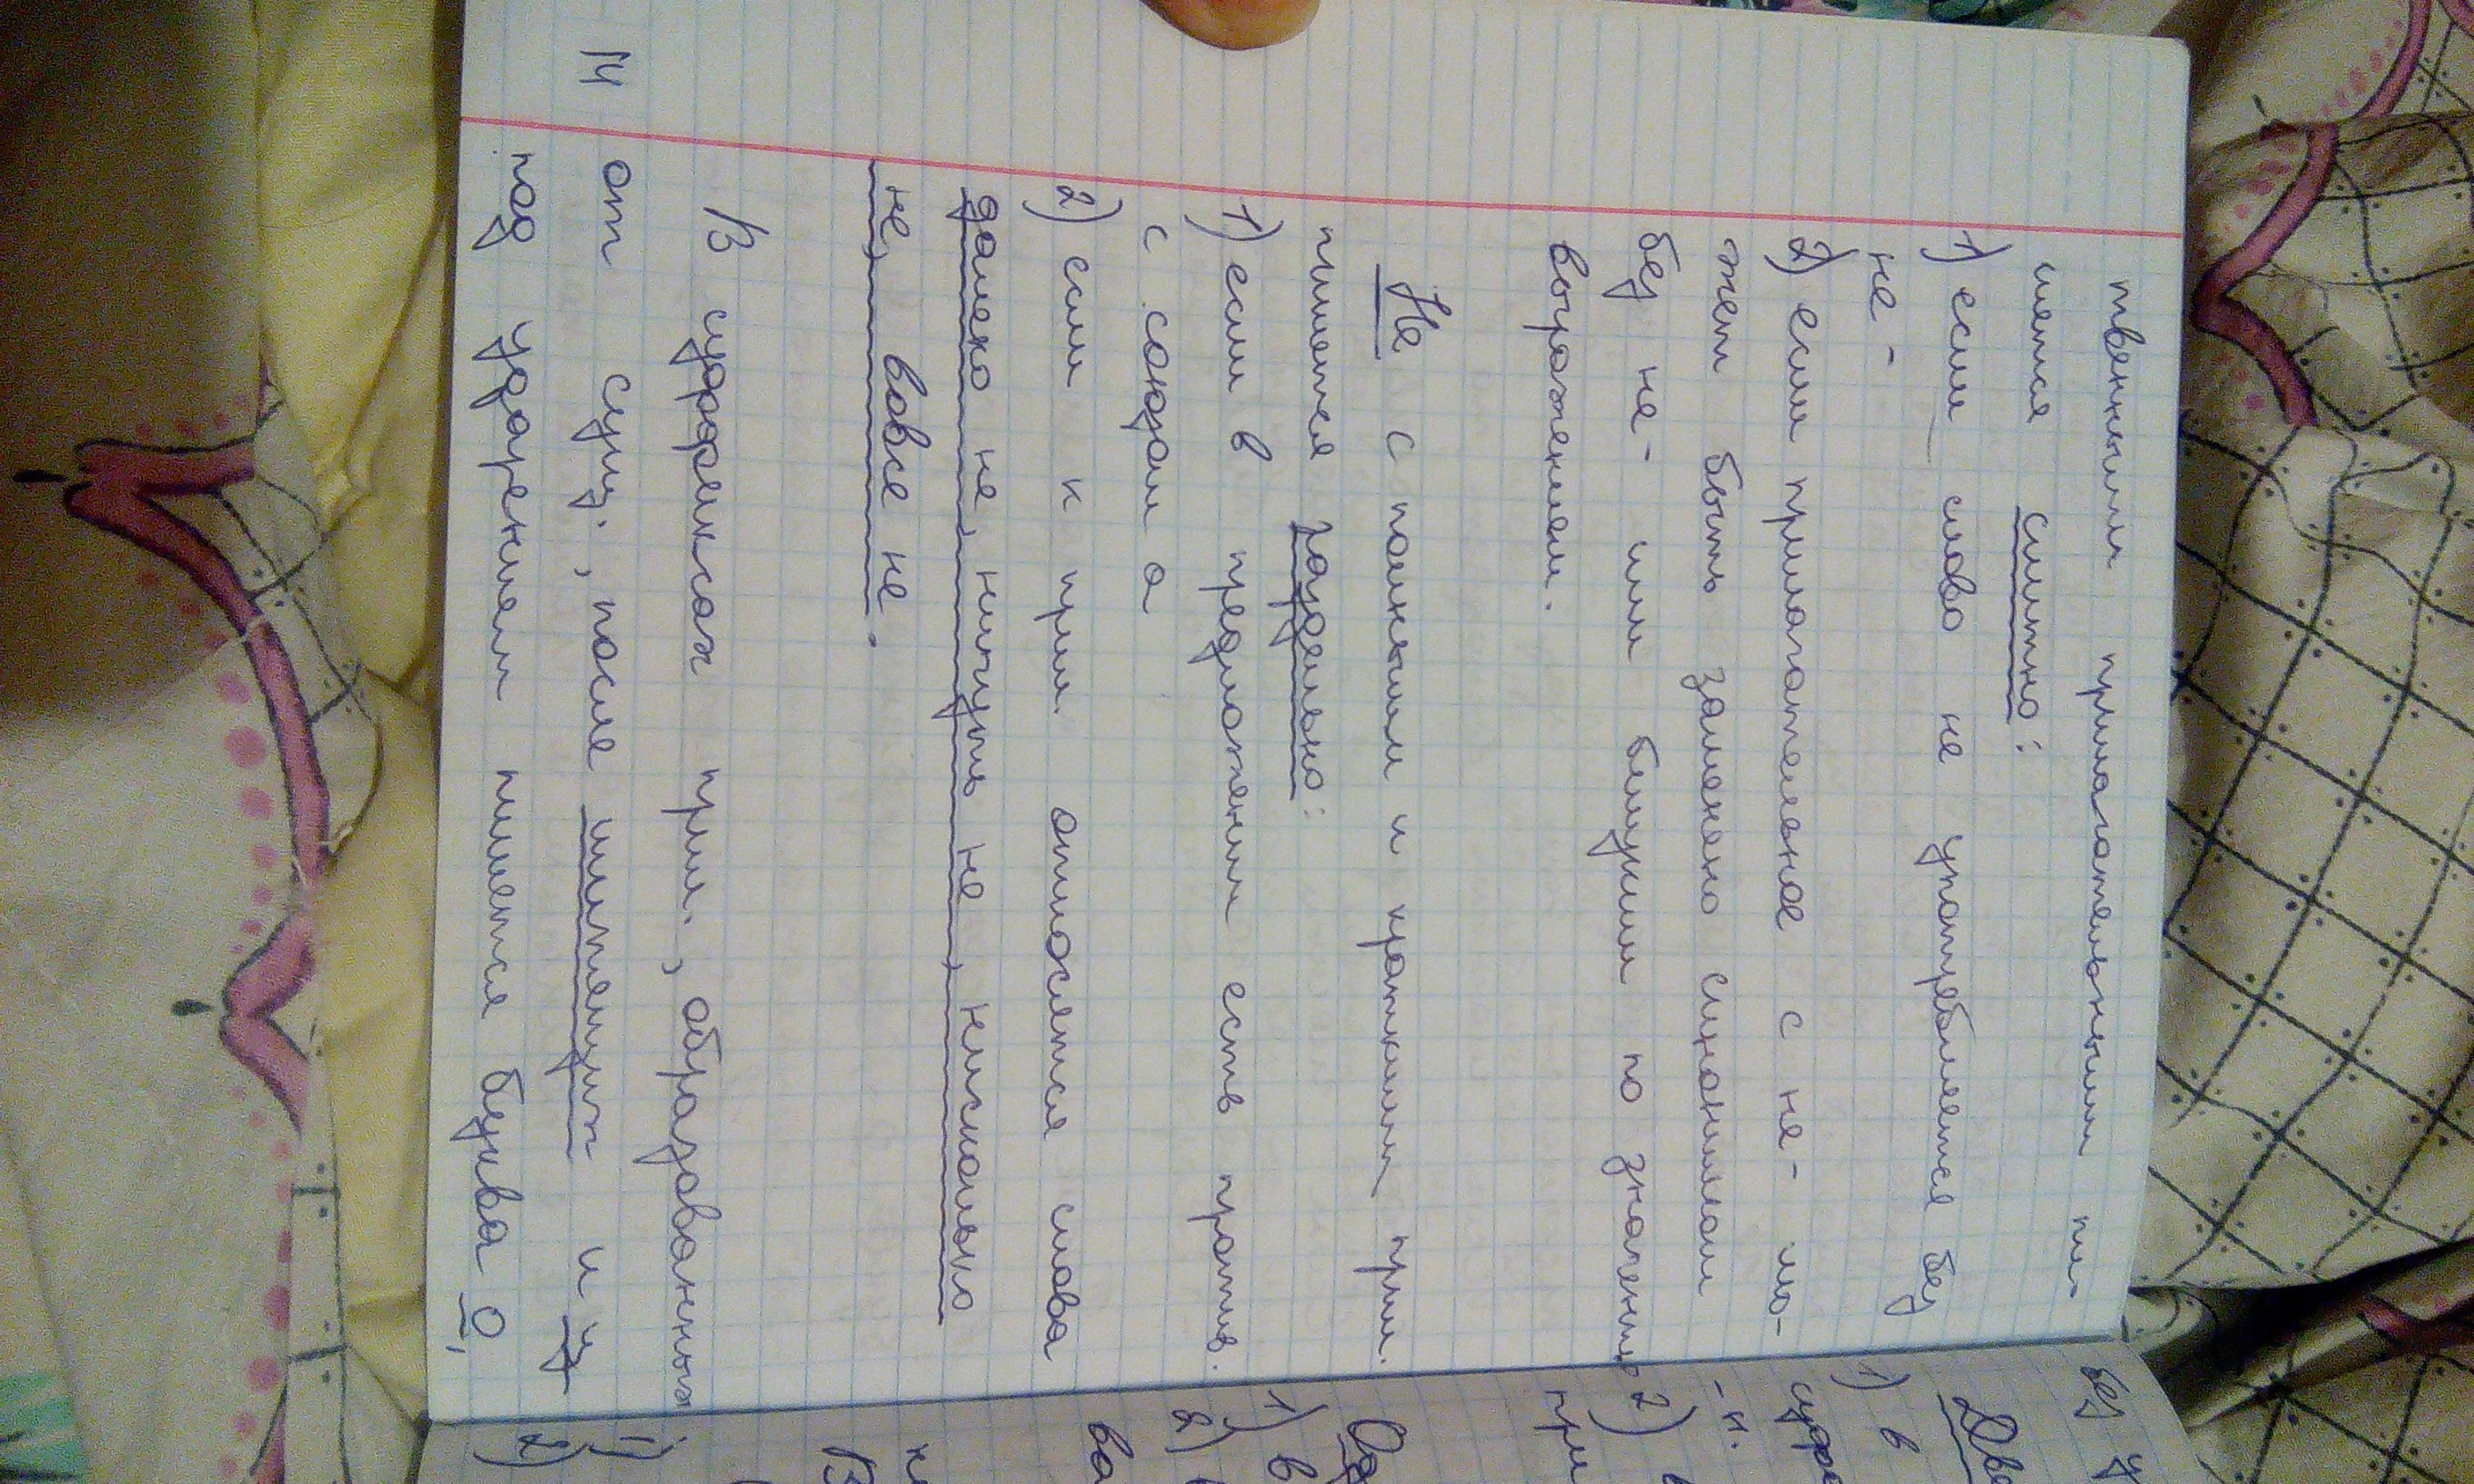 твенными прилагательными пи-
шется слитно:
1) если слово не употребляется без
не-
2) если прилагательное с не- мо-
жет быть заменено синонимом
без не- или близким по значению
выражением.
Не с полными и краткими прил.
пишется раздельно:
1) если в предложении есть против.
с союзом а
2) если к прил. относятся слова
далеко не, ничуть не, нисколько
не, вовсе не.
В суффиксах прил., образованных
14 от сущ., после шипящих и ц
под ударением пишется буква о,
без у
Две
1) в
суф
-н.
2) в
при
Од
1) в
2)
ва
н
В
1)
2)